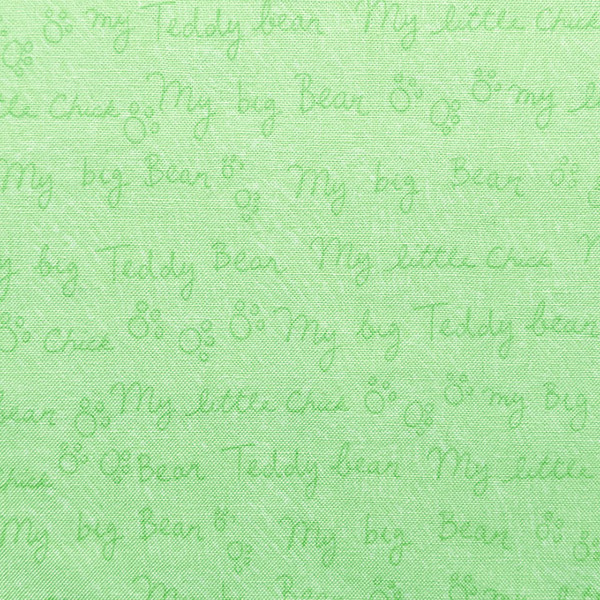 my Teddy bear My little Chick
little Chick My big Bear my
My big Bear My big Bear
big Teddy Bear My little Chick
Chick My big Teddy bear
bear My little Chick my Big
Chick Bear Teddy bear My little
My big Bear My big Bear